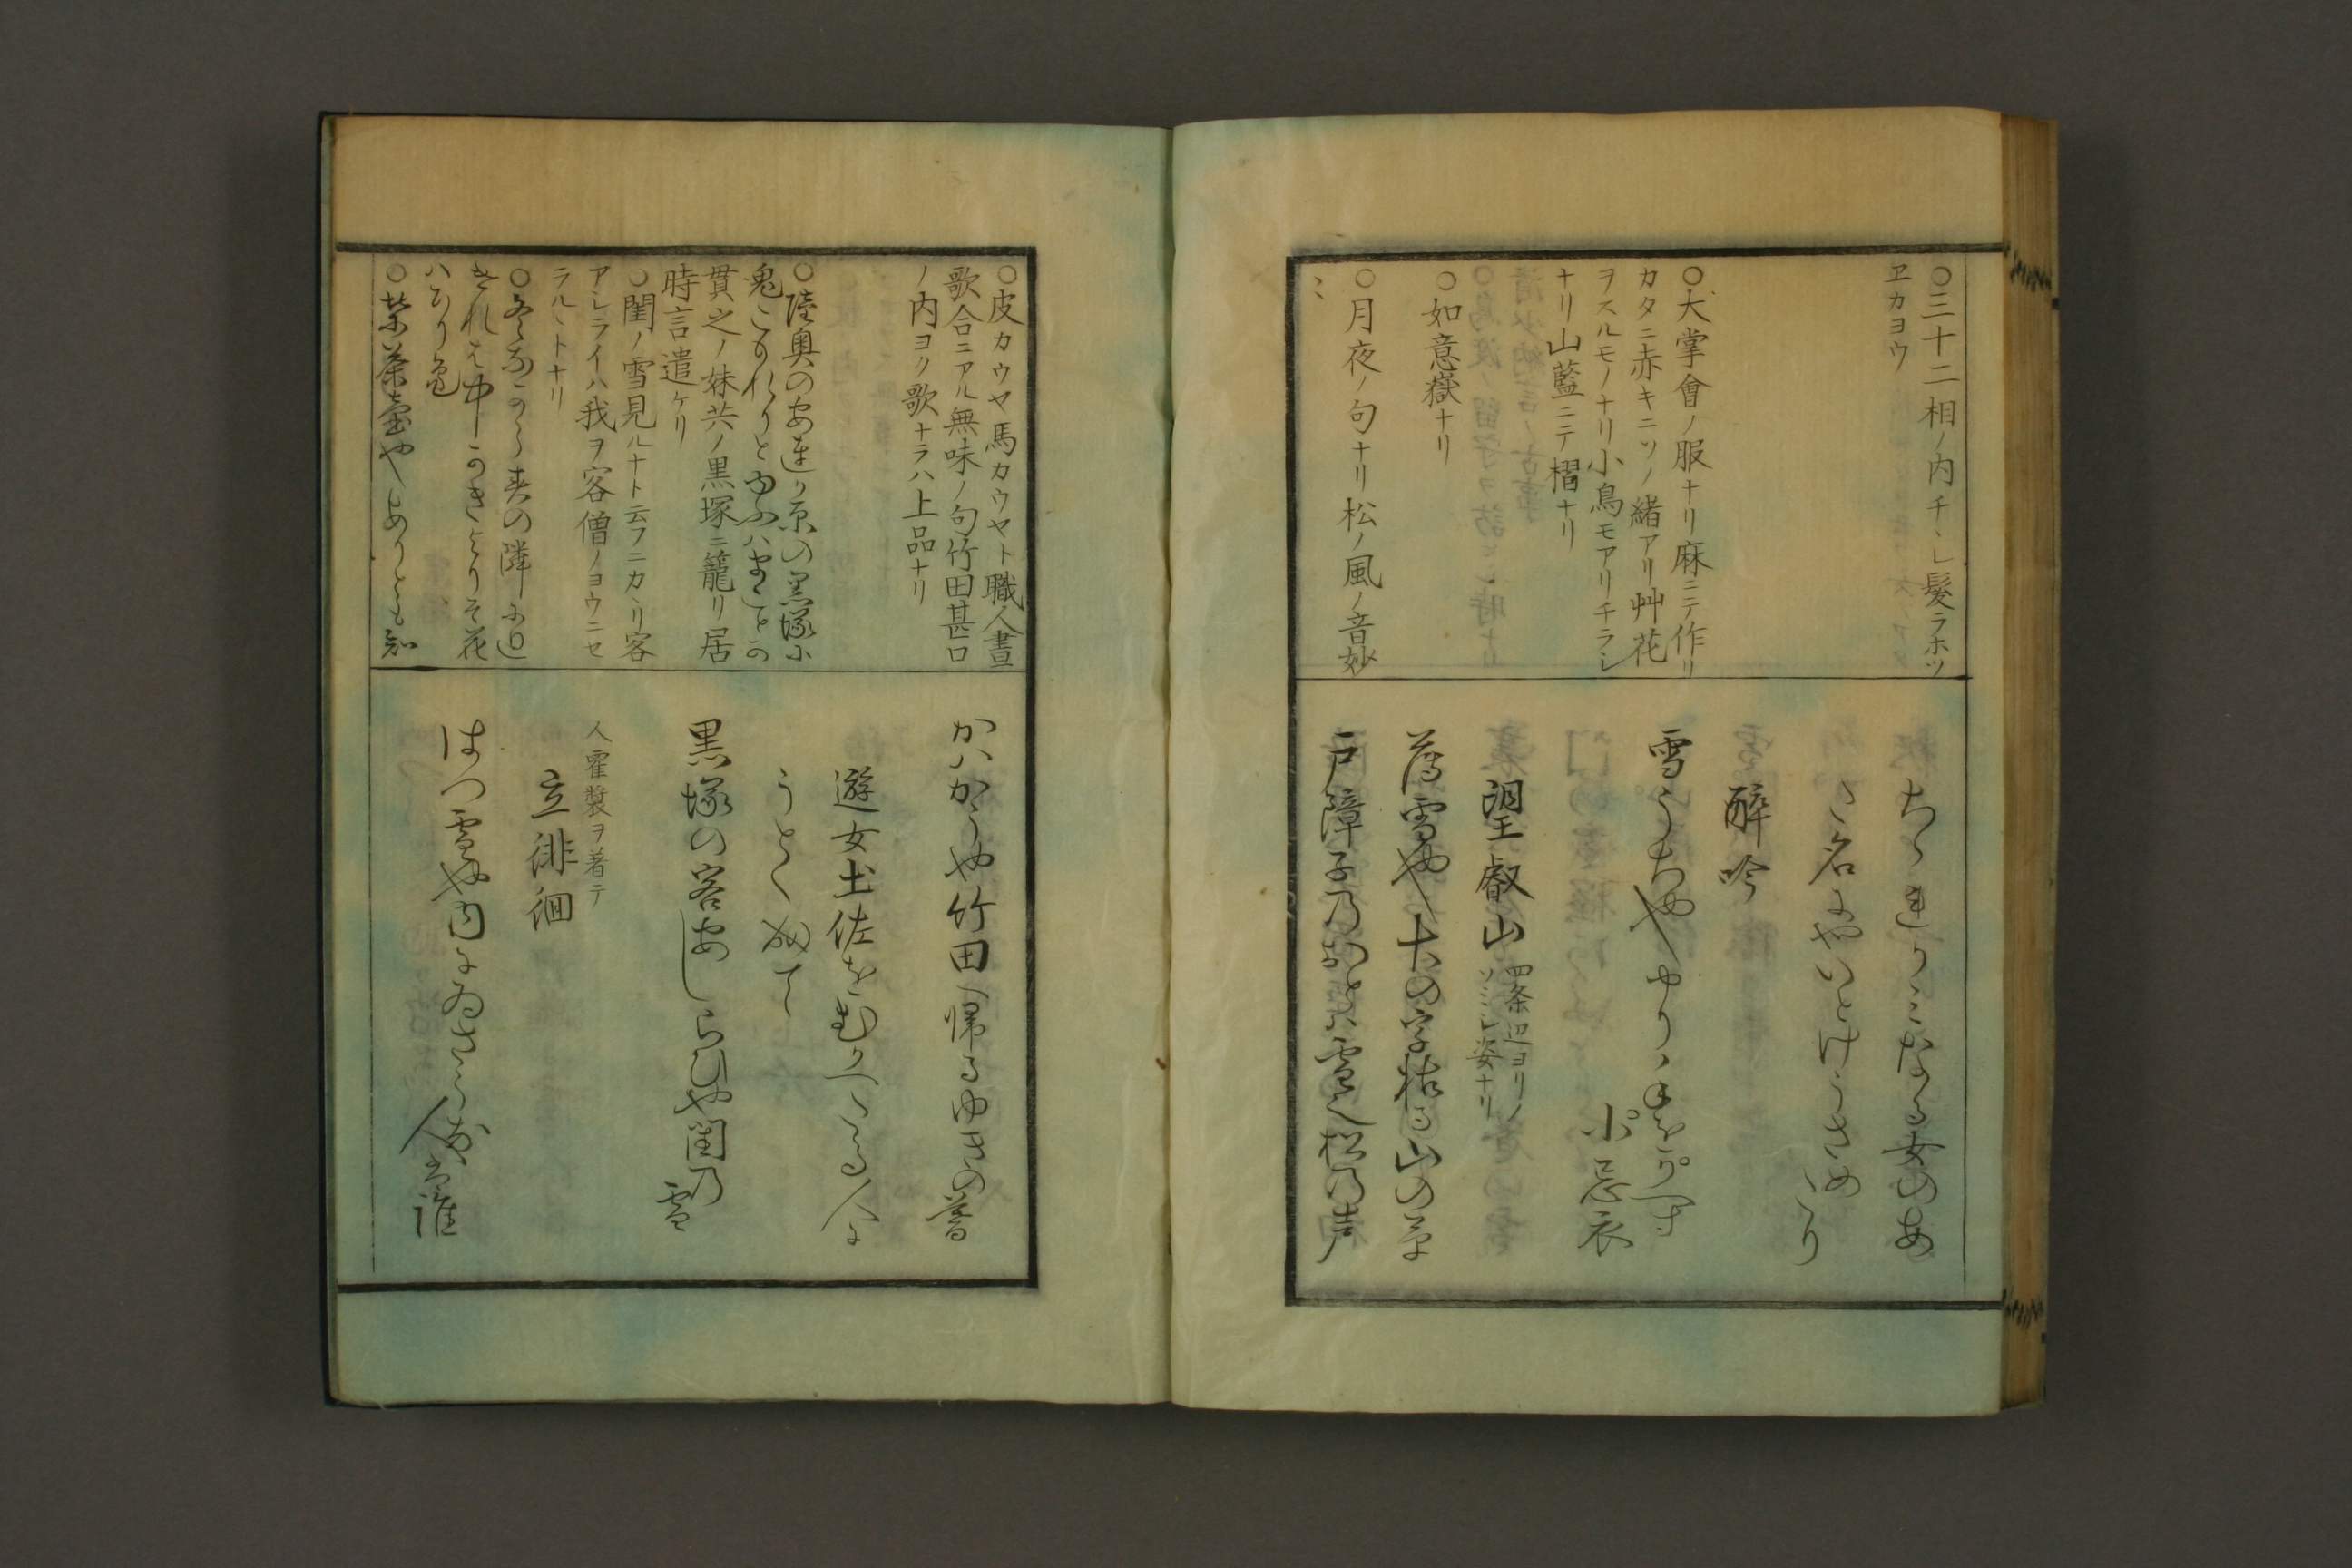 〇三十二相ノ内チヽレ髪ラホツ
ヱカヨウ
〇大掌會ノ服ナリ麻ニテ作リ
カタニ赤キ二ツノ緒アリ艸花
ヲスルモノナリ小鳥モアリチラシ
ナリ山藍ニテ摺ナリ
〇如意嶽ナリ
〇月夜ノ句ナリ松ノ風ノ音妙
〻
ちゝれかみなる女のあ
さ名よやいとけうさめ
たり
醉吟
雪うちややり手を
小忌衣
望叡山
四条辺ヨリノ
ソミシ姿ナリ
薄雪や大の字枯る山の草
戸障子乃おとハ雪也松乃声
〇皮カウヤ馬カウヤト職人畫
歌合ニアル無味ノ句竹田甚口
ノ内ヨク歌ナラハ上品ナリ
〇陸奥の安達か原の黒塚に
鬼こもれりと云ふハまことか
貫之ノ妹共ノ黒塚ニ籠リ居
時言遣ケリ
〇閨ノ雪見ルナト云フニカヽリ客
アシライハ我ヲ客僧ノヨウニセ
ラルヽトナリ
〇冬なから春の隣に近
きれは中かきよりそ花
ハちり
〇茶壷やありとも知
かハかうや竹田へ帰るゆきの暮
遊女土佐をむかへける人に
うとく成て
黒塚の客あしらひや閨乃雪
人霍裳ヲ著テ
立徘徊
はつ雪や内にゐさうな人は誰